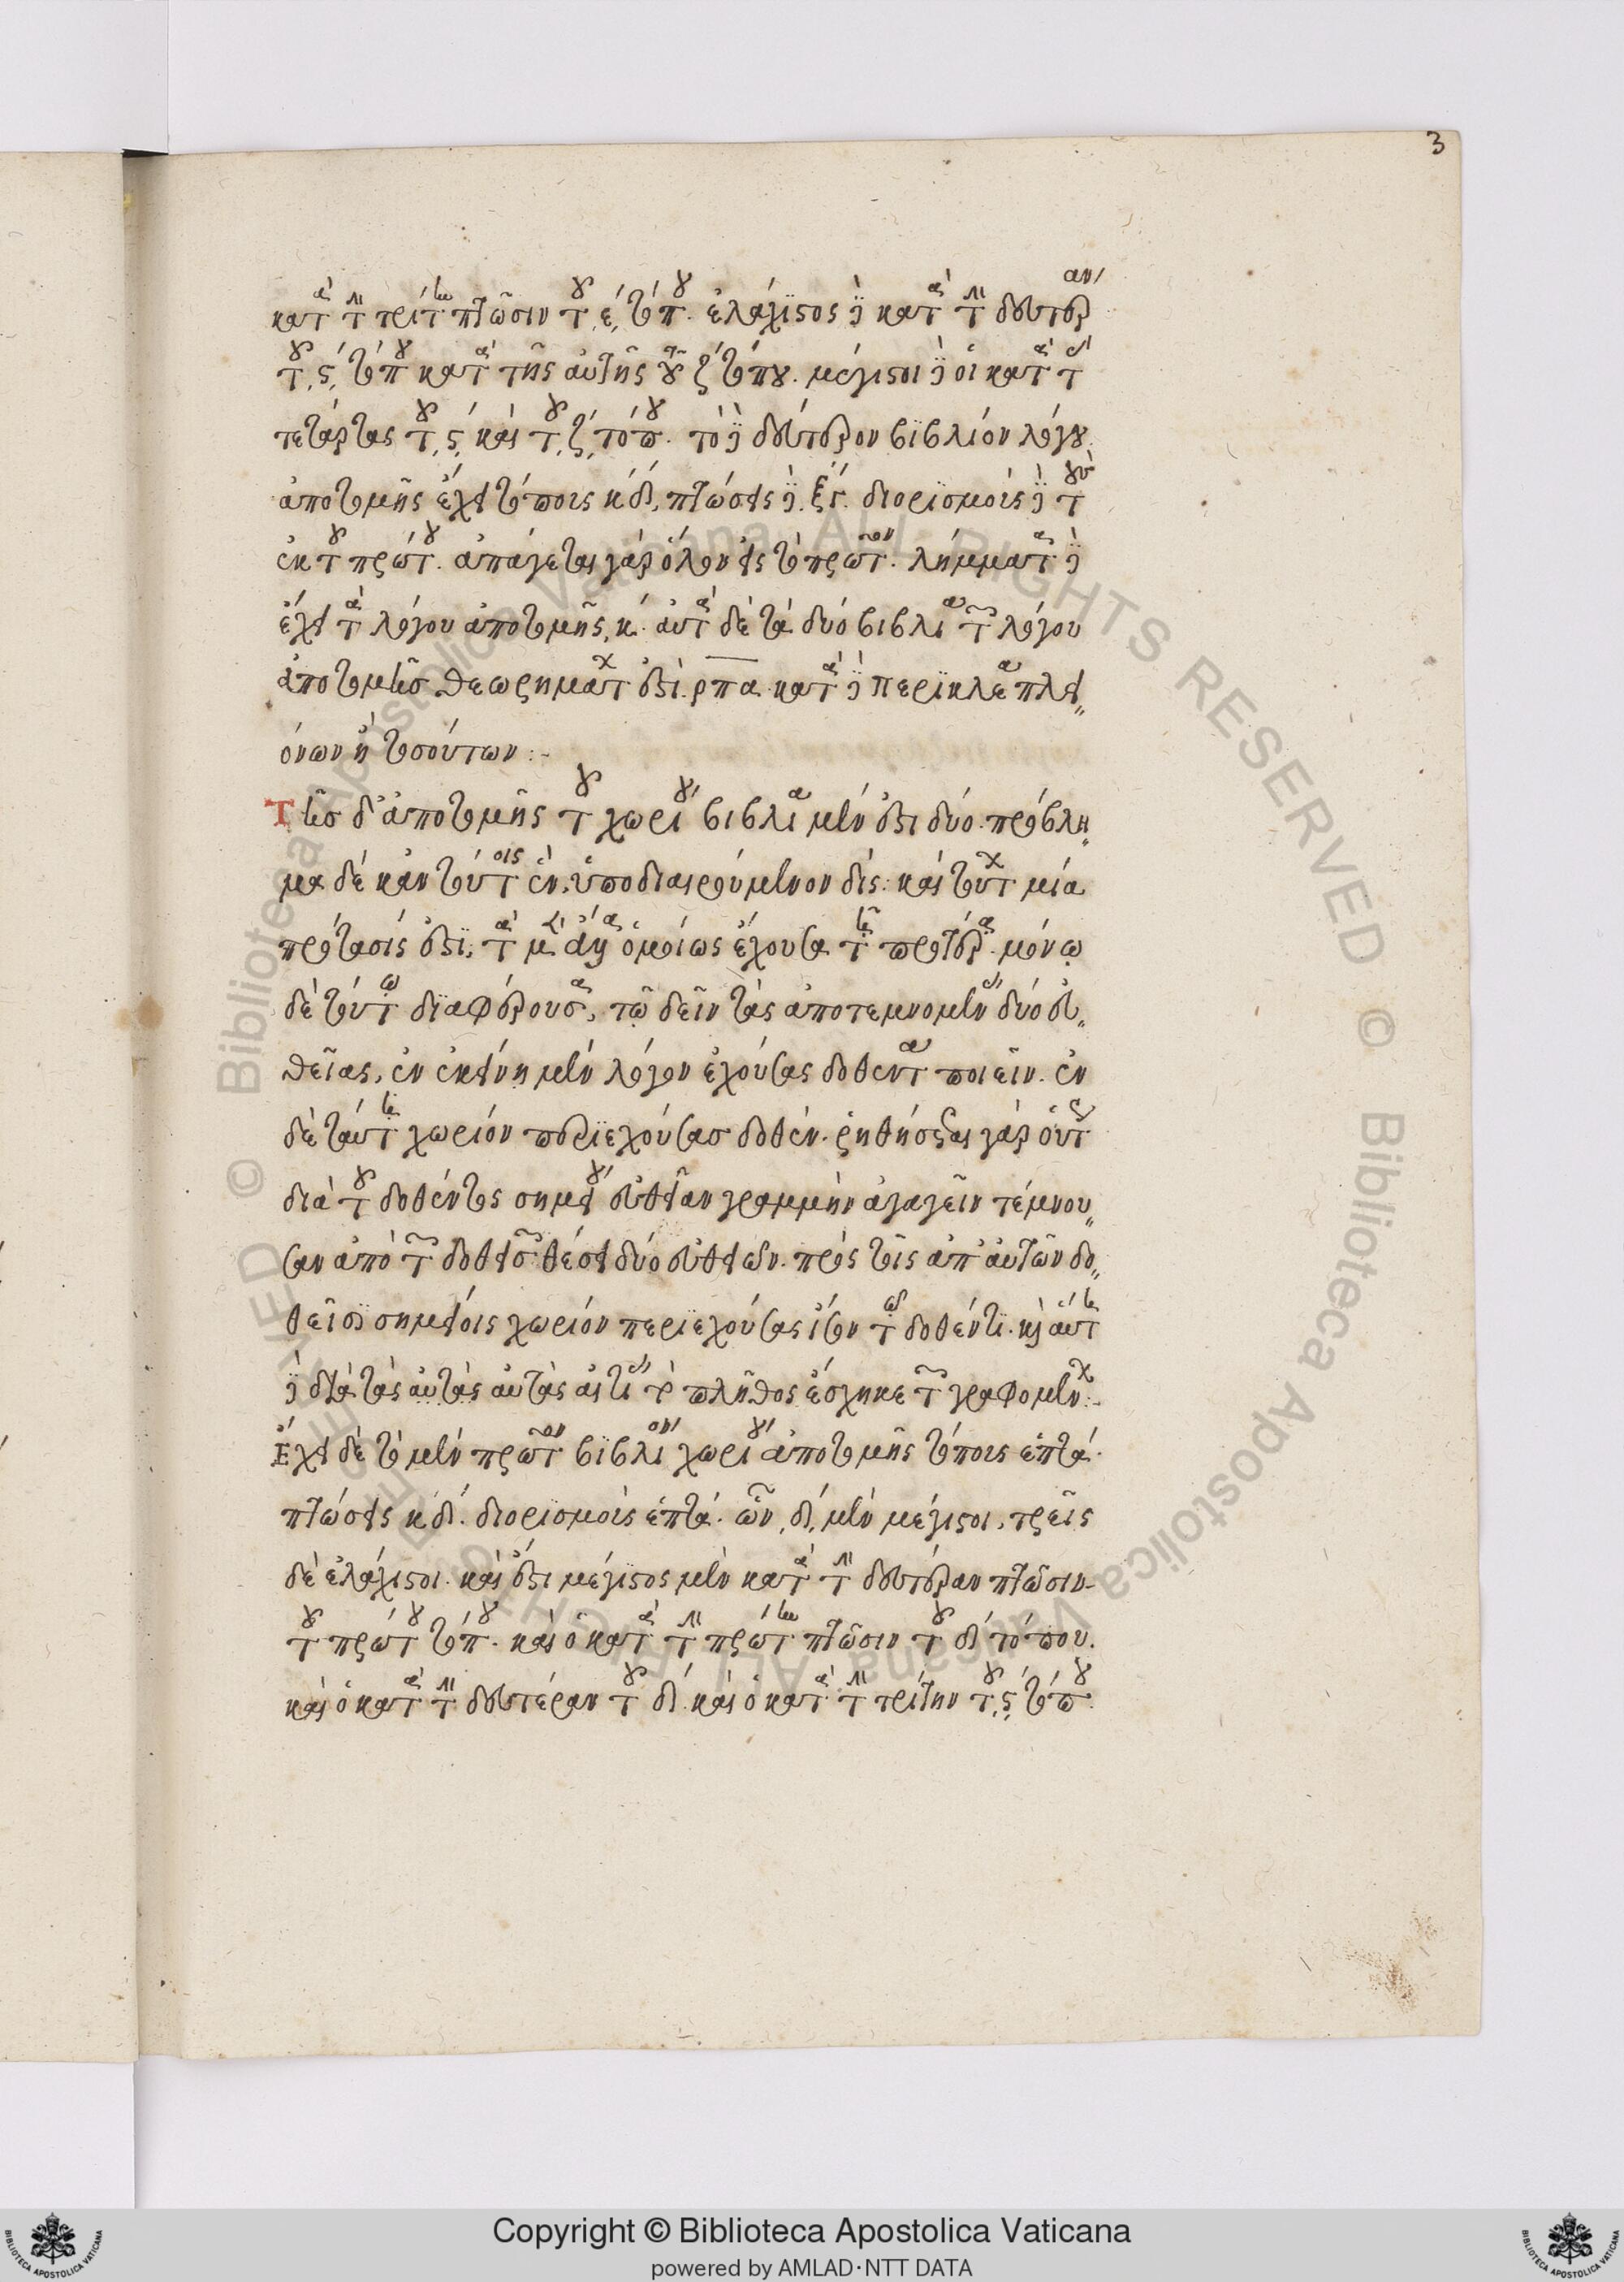 3
κατὰ τὴν τρίτην πτῶσιν τοῦ ε τόπου. ἐλάχιστος δὲ κατὰ τὴν δευτέραν
τοῦ ς τόπου κατὰ τῆς αὐτῆς τοῦ ζ τόπου. μέγιστοι δὲ οἱ κατὰ τὰς
τετάρτας τοῦ ς καὶ τοῦ ζ τόπου. τὸ δὲ δεύτερον βιβλίον λόγου
ἀποτομῆς ἔχει τόπους κδ, πτώσεις δὲ ξγ. διορισμοὺς δὲ τοὺς
ἐκ τοῦ πρώτου. ἀπάγεται γὰρ ὅλον εἰς τὸ πρῶτον. λήμματα δὲ
ἔχει τὰ λόγου ἀποτομῆς, κ. αὐτὰ δὲ τὰ δύο βιβλία τῶν λόγου
ἀποτομῆς θεωρημάτων ἐστὶ ρπα κατὰ δὲ Περικλέα πλει
όνων ἢ τοσούτων :-
Τῆς δ' ἀποτομῆς τοῦ χωρίου βιβλία μέν ἐστι δύο. πρόβλη
μα δὲ κἂν τούτοις ἓν, ὑποδιαιρούμενον δίς. καὶ τούτων μία
πρότασίς ἐστι, τὰ μὲν ἄλλα ὁμοίως ἔχουσα τῇ προτέρᾳ. μόνῳ
δὲ τούτῳ διαφέρουσα, τῷ δεῖν τὰς ἀποτεμνομένας δύο εὐ
θείας, ἐν ἐκείνῃ μὲν λόγον ἐχούσας δοθέντα ποιεῖν. ἐν
δὲ ταύτῃ χωρίον περιεχούσας δοθέν. ῥηθήσεται γὰρ οὕτως
διὰ τοῦ δοθέντος σημείου εὐθεῖαν γραμμὴν ἀγαγεῖν τέμνου
σαν ἀπὸ τῶν δοθεισῶν θέσει δύο εὐθειῶν. πρὸς τοῖς ἀπ' αὐτῶν δο
θεῖσι σημείοις χωρίον περιεχούσας ἴσον τῷ δοθέντι. καὶ αὕτη
δὲ διὰ τὰς αὐτὰς αὐτὰς αἰτίας τὸ πλῆθος ἔσχηκε τῶν γραφομένων :-
Ἔχει δὲ τὸ μὲν πρῶτον βιβλίον χωρίου ἀποτομῆς τόπους ἑπτά.
πτώσεις κδ. διορισμοὺς ἑπτά. ὧν δ μὲν μέγιστοι, τρεῖς
δὲ ἐλάχιστοι. καὶ ἔστι μέγιστος μὲν κατὰ τὴν δευτέραν πτῶσιν
τοῦ πρώτου τόπου. καὶ ὁ κατὰ τὴν πρώτην πτῶσιν τοῦ δ τόπου.
καὶ ὁ κατὰ τὴν δευτέραν τοῦ δ. καὶ ὁ κατὰ τὴν τρίτην τοῦ ς τόπου.
© Biblioteca Apostolica Vaticana ALL RIGHTS RESERVED
Copyright © Biblioteca Apostolica Vaticana
powered by AMLAD·NTT DATA
BIBLIOTECA APOSTOLICA VATICANA
BIBLIOTECA APOSTOLICA VATICANA